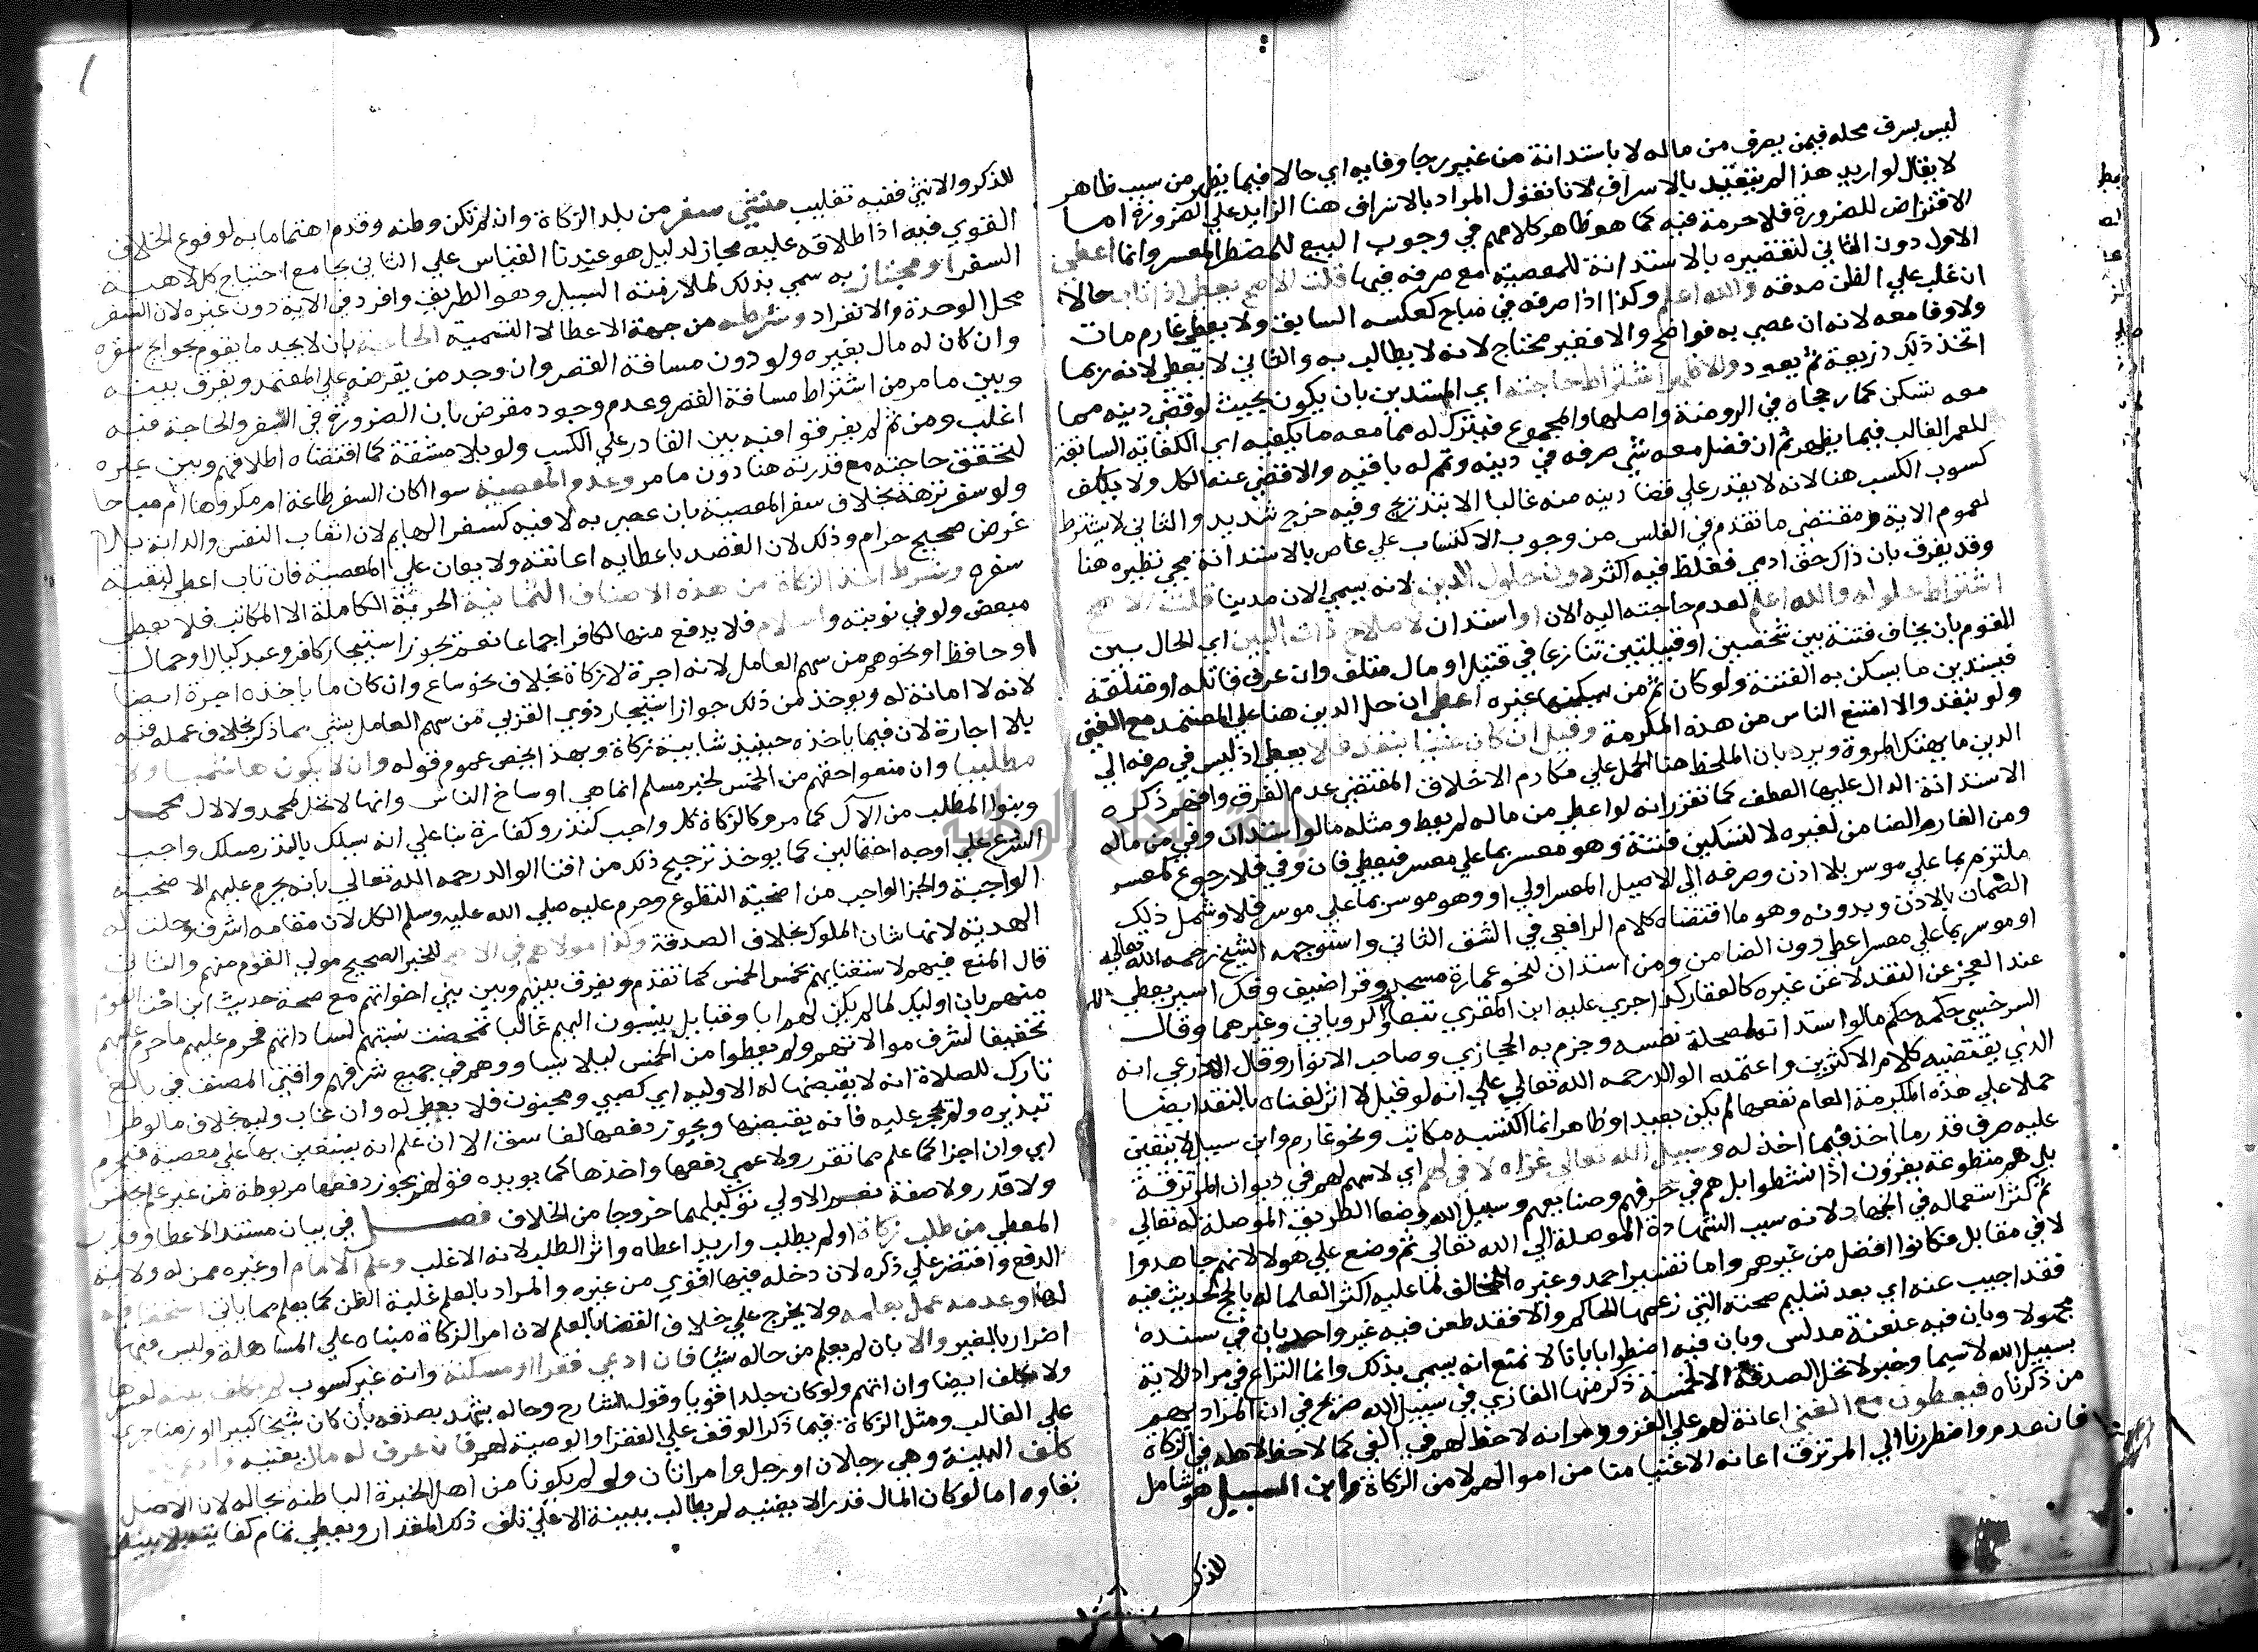 ليس بسرف محله فيمن يصرف من ماله لا باستدانة من غير رجا وفايه اي حالا فيما يظهر من سبب ظاهر
لا يقال لو اريد هذا لم يتقيد بالاسراف لانا نقول المراد بالاسراف هنا الزايد علي الضرورة اما
الاقتراض للضرورة فلا حرمة فيه كما هو ظاهر كلامهم في وجوب البيع للمضطر المعسر وانما اعطي
الاول دون الثاني لتقصيره بالاستدانة للمعصية مع صرفه فيها قلت الاصح يعطي اذا تاب حالا
ان غلب علي الظن صدقه والله اعلم وكذا اذا صرفه في مباح كعكسه السابق ولا يعطي غارم مات
ولا وفا معه لانه ان عصي به فواضح والا فغير محتاج لانه لا يطالب به والثاني لا يعطي لانه ربما
اتخذ ذلك ذريعة ثم يعود والاظهر اشتراط حاجته اي المستدين بان يكون بحيث لو قضي دينه مما
معه تمسكن كما رجحاه في الروضة واصلها والمجموع فيترك له مما معه ما يكفيه اي الكفاية السابقة
للعمر الغالب فيما يظهر ثم ان فضل معه شي صرفه في دينه وتمم له باقيه والا قضي عنه الكل ولا يكلف
كسوب الكسب هنا لانه لا يقدر علي قضا دينه منه غالبا الا بتدريج وفيه حرج شديد والثاني لا يشترط
لعموم الاية ومقتضي ما تقدم في الفلس من وجوب الاكتساب علي عاص بالاستدانة مجي نظيره هنا
وقد يفرق بان ذاك حق ادمي فغلظ فيه اكثر دون حلول الدين لانه يسمي الان مدينا قلت الاصح
اشتراط حلوله والله اعلم لعدم حاجته اليه الان او استدان لاصلاح ذات البين اي الحال بين
القوم بان يخاف فتنة بين شخصين او قبيلتين تنازعا في قتيل او مال متلف وان عرف قاتله او متلفه
فيستدين ما يسكن به الفتنة ولو كان ثم من يسكنها غيره اعطي ان حل الدين هنا علي المعتمد مع الغني
ولو بنقد والا امتنع الناس من هذه المكرمة وقيل ان كان غنيا بنقد فلا يعطي اذ ليس في صرفه الي
الدين ما يهتك المروة ويرد بان الملحظ هنا الحمل علي مكارم الاخلاق المقتضي عدم الفرق وافهم ذكره
الاستدانة الدال عليها العطف كما تقرر انه لو اعطي من ماله لم يعط ومثله ما لو استدان ووفي من ماله
ومن الغارم الضامن لغيره لا لتسكين فتنة وهو معسر بما علي معسر فيعطي فان وفي فلا رجوع كمعسر
ملتزم بما علي موسر بلا اذن وصرفه الي الاصيل المعسر اولي او وهو موسر بما علي موسر فلا وشمل ذلك
الضمان بالاذن وبدونه وهو ما اقتضاه كلام الرافعي في الشق الثاني واستوجهه الشيخ رحمه الله تعالي
او موسر بما علي معسر اعطي دون الضامن ومن استدان لنحو عمارة مسجد وقرا ضيف وفك اسير يعطي
عند العجز عن النقد لا عن غيره كالعقار كذا جري عليه ابن المقري تبعا للروياني وغيرهما وقال
السرخسي حكمه حكم ما لو استدان لمصلحة نفسه وجزم به الحجازي وصاحب الانوار وقال الاذرعي انه
الذي يقتضيه كلام الاكثرين واعتمده الوالد رحمه الله تعالي علي انه لو قيل لا اثر لغناه بالنقد ايضا
حملا علي هذه المكرمة العام نفعها لم يكن بعيدا وظاهر انما اكتسبه مكاتب ونحو غارم وابن سبيل لا يتعين
عليه صرف قدر ما اخذ فيما اخذ له وسبيل الله تعالي غزاه لا في لهم اي لا سهم لهم في ديوان المرتزقة
بل هم متطوعة يغزون اذا نشطوا بل هم في حرفهم وصنايعهم وسبيل الله وضعا الطريق الموصلة له تعالي
ثم كثر استعماله في الجهاد لانه سبب الشهادة الموصلة الي الله تعالي ثم وضع علي هولا لانهم جاهدوا
لا في مقابل فكانوا افضل من غيرهم واما تفسير احمد وغيره المخالف لما عليه اكثر العلما له بالحج لحديث فيه
فقد اجيب عنه اي بعد تسليم صحته التي زعمها الحاكم والا فقد طعن فيه غير واحد بان في سنده
مجهولا وبان فيه عنعنة مدلس وبان فيه اضطرابا بانا لا نمنع انه يسمي بذلك وانما النزاع في مراد الاية
بسبيل الله لا سيما وخبر لا تحل الصدقة الا لخمسة ذكر منها الغازي في سبيل الله صريح في ان المراد بهم
من ذكرناه فيعطون مع الغني اعانة لهم علي الغزو ومر انه لا حظ لهم في الفي كما لا حظ لاهله في الزكاة
فان عدم واضطررنا الي المرتزق اعانه الاغنيا منا من اموالهم لا من الزكاة وابن السبيل هو شامل
للذكر
للذكر والانثي ففيه تغليب منشي سفر من بلد الزكاة وان لم تكن وطنه وقدم اهتماما به لوقوع الخلاف
القوي فيه اذ اطلاقه عليه مجاز لدليل هو عندنا القياس علي الثاني بجامع احتياج كل لاهبة
السفر او مجتاز به سمي بذلك لملازمته السبيل وهو الطريق وافرد في الاية دون غيره لان السفر
محل الوحدة والانفراد وشرطه من جهة الاعطا لا التسمية الحاجة بان لا يجد ما يقوم بحوايج سفره
وان كان له مال بغيره ولو دون مسافة القصر وان وجد من يقرضه علي المعتمد ويفرق بينه
وبين ما مر من اشتراط مسافة القصر وعدم وجود مقرض بان الضرورة في السفر والحاجة فيه
اغلب ومن ثم لم يفرقوا فيه بين القادر علي الكسب ولو بلا مشقة كما اقتضاه اطلاقهم وبين غيره
لتحقق حاجته مع قدرته هنا دون ما مر وعدم المعصية سوا اكان السفر طاعة ام مكروها ام مباحا
ولو سفر نزهة بخلاف سفر المعصية بان عصي به لا فيه كسفر الهايم لان اتعاب النفس والدابة بلا
غرض صحيح حرام وذلك لان القصد باعطايه اعانته ولا يعان علي المعصية فان تاب اعطي لبقية
سفره وشرط اخذ الزكاة من هذه الاصناف الثمانية الحرية الكاملة الا المكاتب فلا يعطي
مبعض ولو في نوبته واسلام فلا يدفع منها لكافر اجماعا نعم يجوز استيجار كافر وعبد كيال او حمال
او حافظ او نحوهم من سهم العامل لانه اجرة لا زكاة بخلاف نحو ساع وان كان ما ياخذه اجرة ايضا
لانه لا امانة له ويوخذ من ذلك جواز استيجار ذوي القربي من سهم العامل بشي مما ذكر بخلاف عمله فيه
بلا اجارة لان فيما ياخذه حينيذ شايبة زكاة وبهذا يخص عموم قوله وان لا يكون هاشميا ولا
مطلبيا وان منعوا حقهم من الخمس لخبر مسلم انما هي اوساخ الناس وانها لا تحل لمحمد ولا لال محمد
وبنوا المطلب من الال كما مر وكالزكاة كل واجب كنذر وكفارة بنا علي انه يسلك بالنذر مسلك واجب
الشرع علي اوجه احتمالين كما يوخذ ترجيح ذلك من افتا الوالد رحمه الله تعالي بانه يحرم عليهم الاضحية
الواجبة والجزالواجب من اضحية التطوع وحرم عليه صلي الله عليه وسلم الكل لان مقامه اشرف وحلت له
الهدية لانها شان الملوك بخلاف الصدقة وكذا مولاهم في الاصح للخبر الصحيح مولي القوم منهم والثاني
قال المنع فيهم لاستغنايهم بخمس الخمس كما تقدم ويفرق بينهم وبين بني اخواتهم مع صحة حديث ابن اخت القوم
منهم بان اوليك لما لم يكن لهم ابا وقبايل ينسبون اليهم غالبا تمحضت نسبتهم لساداتهم فحرم عليهم ما حرم عليهم
تحقيقا لشرف موالاتهم ولم يعطوا من الخمس ليلا يساووهم في جميع شرفهم وافتي المصنف في بالغ
تارك للصلاة انه لا يقبضها له الا وليه اي كصبي ومجنون فلا يعطي له وان غاب وليه بخلاف ما لو طرا
تبذيره ولم يحجر عليه فانه يقبضها ويجوز دفعها لفاسق الا ان علم انه يستعين بها علي معصية فيحرم
اي وان اجزا كما علم مما تقرر ولاعمي دفعها واخذها كما يويده قولهم يجوز دفعها مربوطة من غير علم بجنس
ولا قدر ولا صفة نعم الاولي توكيلهما خروجا من الخلاف فصل في بيان مستند الاعطا وقدر
المعطي من طلب زكاة او لم يطلب واريد اعطاه واثر الطلب لانه الاغلب وعلم الامام او غيره ممن له ولاية
الدفع واقتصر علي ذكره لان دخله فيها اقوي من غيره والمراد بالعلم غلبة الظن كما يعلم مما ياتي استحقاقه
لها او عدمه عمل بعلمه ولا يخرج علي خلاف القضا بالعلم لان امر الزكاة مبناه علي المساهلة وليس فيها
اضرار بالغير والا بان لم يعلم من حاله شيا فان ادعي فقرا او مسكنة وانه غير كسوب لم يكلف بينة لعسرها
ولا يحلف ايضا وان اتهم ولو كان جلدا قويا وقول الشارح وحاله يشهد بصدقه بان كان شيخا كبيرا او زمنا جري
علي الغالب ومثل الزكاة فيما ذكر الوقف علي الفقرا والوصية لهم فان عرف له مال يغنيه وادعي تلفه
كلف البينة وهي رجلان او رجل وامراتان ولو لم يكونا من اهل الخبرة الباطنه بحاله لان الاصل
بقاوه اما لو كان المال قدرا لا يغنيه لم يطالب ببينة الا علي تلف ذلك المقدار ويعطي تمام كفايته بلا بينة